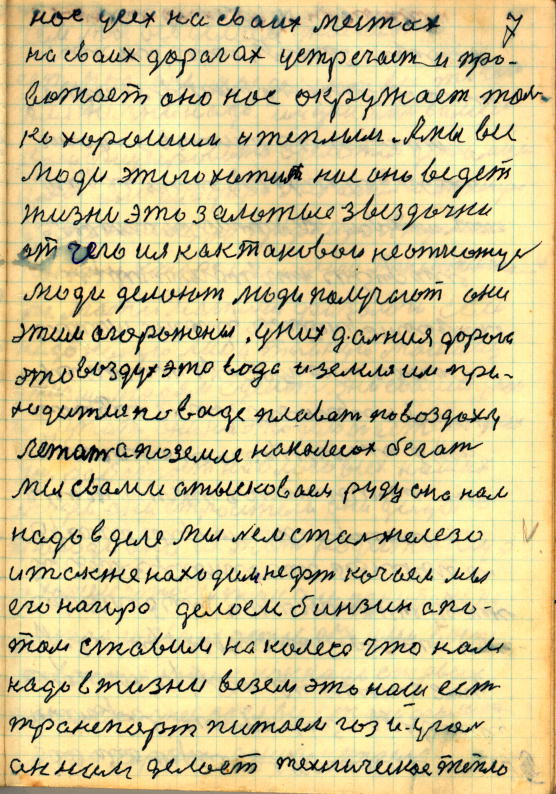 нас усех на сваих местах 7
на сваих дорагах устречает и про-
вожает оно нас окружает толь
ко хорошим и теплым. А мы все
люди этого хотим нас оно ведет
жизни это залотые звездочки
от чего ия как таковои не откожус
люди делоют люди получают они
этим огорожены, у них далния дорога
это воздух это вода и земля им при-
ходится по ваде плават по воздоху
летат а по земле на колесох бегат
мы свами отыскаваем руду она нам
надо в деле мы  сталь железо
и также находим нефт качаем мы
его нагоро делоем бинзин апо-
том ставим на колеса что нам
надо в жизни везем это наш ест
транспорт питаем газ и угал
ан нам делоет техническое тепло